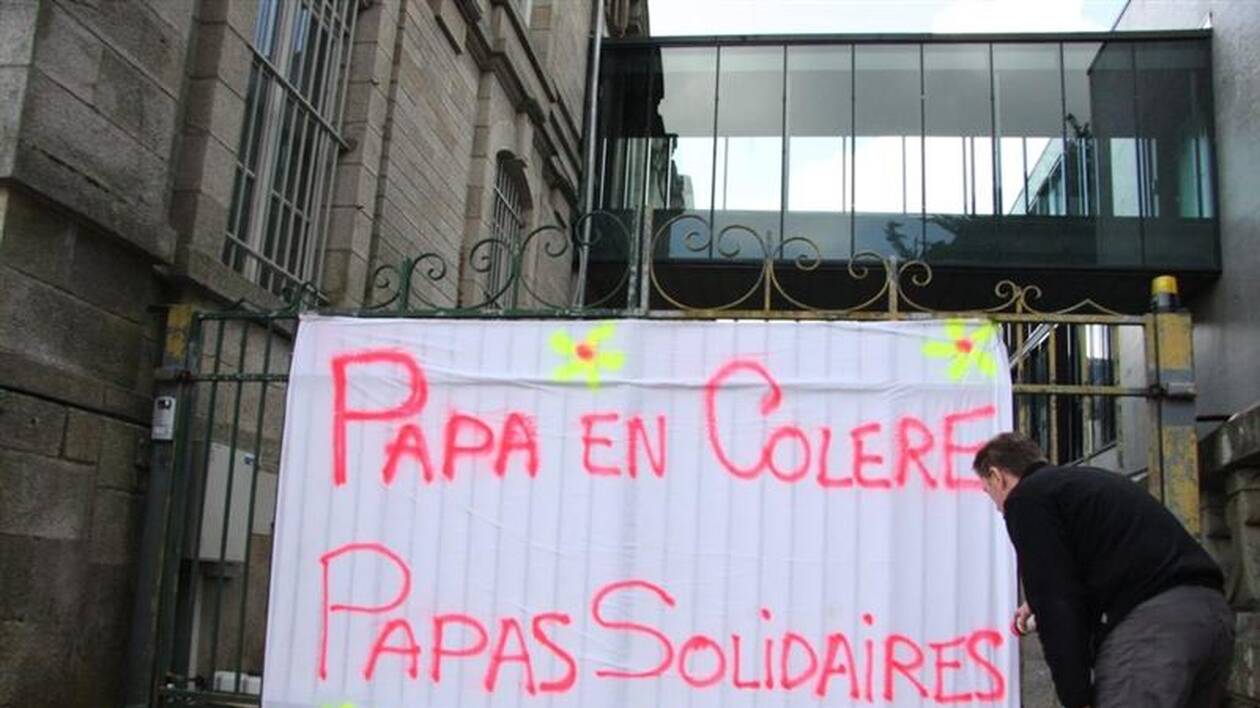 PAPA EN COLERE
PAPAS SOLiDAiRES